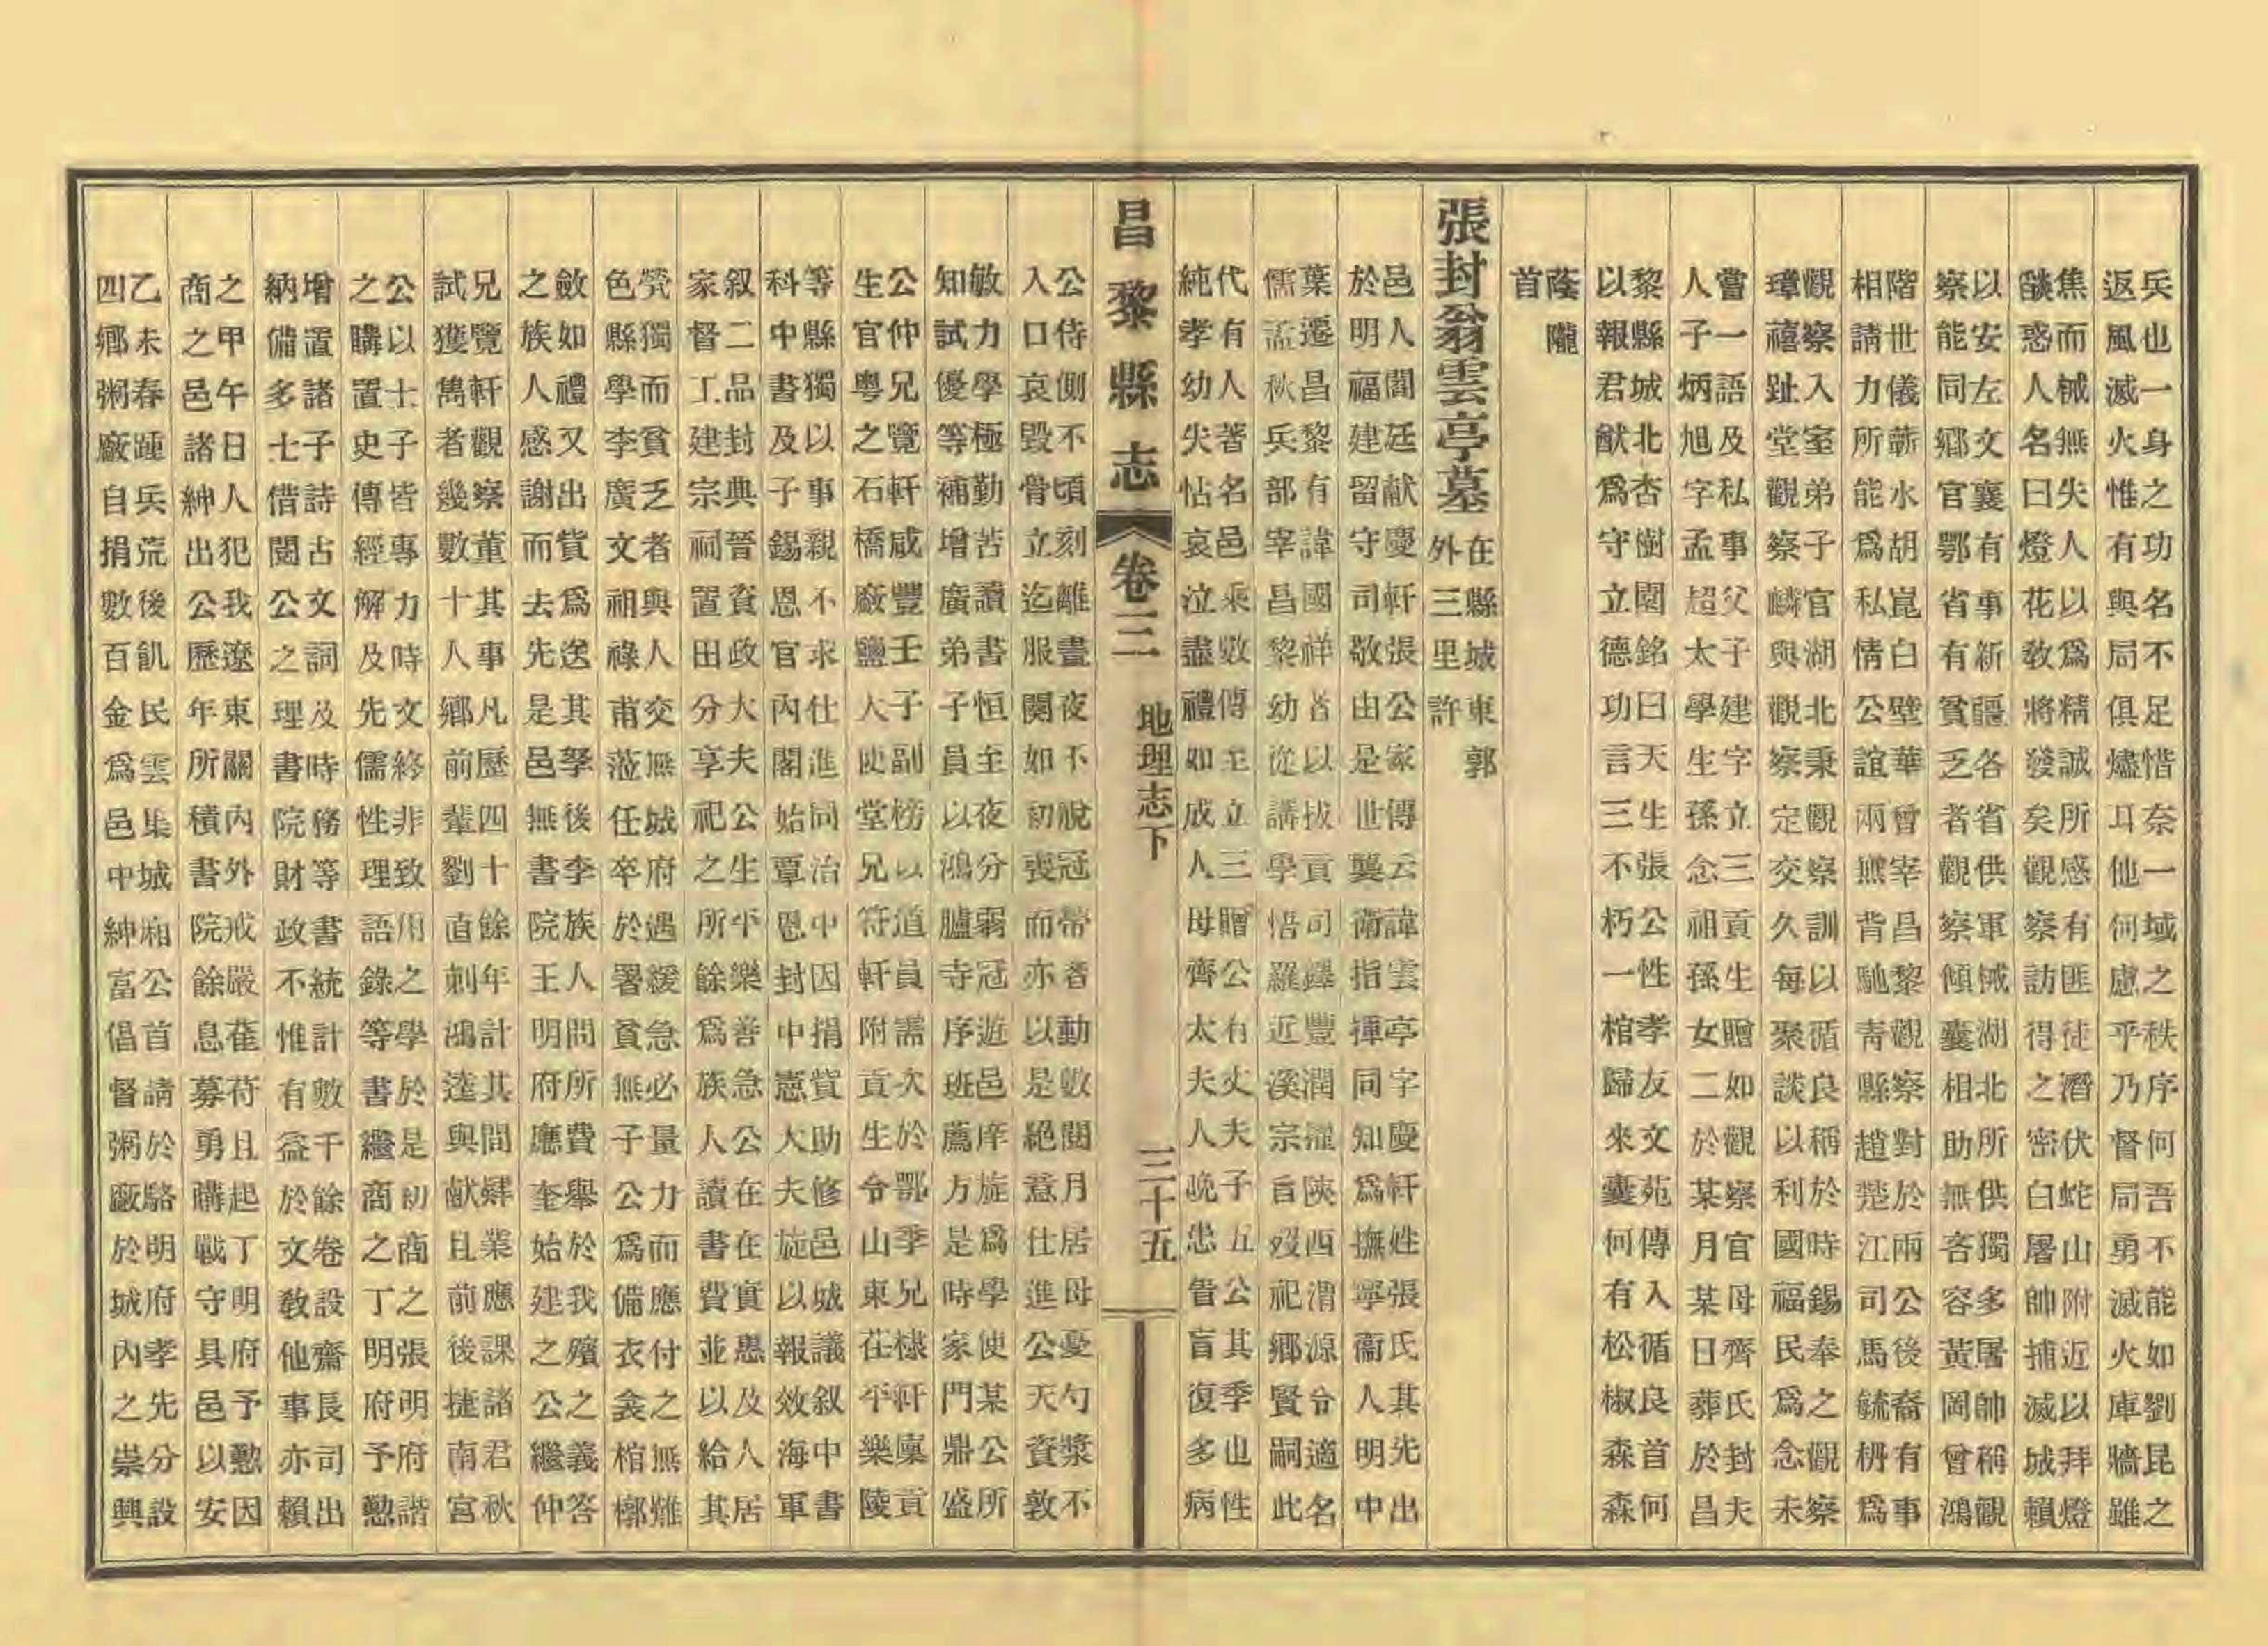 兵也一身之功名不足惜奈一域之秩序何吾不能如劉昆之
返風滅火惟有與局俱燼耳他何慮乎乃督局勇滅火庫牆雖
焦而械無失人以爲精誠所感有匪徒潛伏蛇山附近以拜燈
燄惑人名曰燈花敎將發矣觀察訪得之密白屠帥捕滅城賴
以安左文襄有事新疆各省供軍械湖北所供獨多屠帥稱觀
察能同鄉官鄂省有貧乏者觀察傾囊相助無吝容黃岡曾鴻
階世儀蘄水胡崑白壁華曾宰昌黎觀察對於兩公後裔有事
相請力所能爲私情公誼兩無背馳青縣趙楚江司馬毓枬爲
觀察入室弟子官湖北秉觀察訓以循良稱於時錫奉之觀察
瑋禧趾堂觀察嶙與觀察定交久每聚談以利國福民爲念未
嘗一語及私事父子建字立三貢生贈如觀察官母齊氏封夫
人子炳旭字孟超太學生孫念祖孫女二於某月某日葬於昌
黎縣城北杏樹園銘曰天生張公性孝友文苑傳入循良首何
以報君猷爲守立德功言三不朽一棺歸來囊何有松椒森森
蔭隴
首
張封翁雲亭墓
在縣城東郭
外三里許
邑人閻廷献慶軒張公家傳云諱雲亭字慶軒姓張氏其先出
於明福建留守司敬由是世襲衞指揮同知爲撫寧衞人明中
葉遷昌黎有諱國祥者以拔貢司鐸豐潤濯陝西渭源令適名
儒孟秋兵部宰昌黎幼從講學悟羅近溪宗旨歿祀鄉賢嗣此
代有人著名邑乘數傳至立三贈公有丈夫子五公其季也性
純孝幼失怙哀泣盡禮如成人母齊太夫人晚患眚盲復多病
昌黎縣志 卷三 地理志下 三十五
公侍側不頃刻離晝夜不脫冠帶者動數閱月居母憂勺漿不
入口哀毀骨立迄服闋如初喪而亦以是絕意仕進公天資敦
敏力學極勤苦讀書恒至夜分弱冠遊邑庠旋爲學使某公所
知試優等補增廣弟子員以鴻臚寺序班薦方是時家門鼎盛
公仲兄覽軒咸豐壬子副榜以道員需次於鄂季兄棣軒廩貢
生官粤之石橋廠鹽大使堂兄符軒附貢生令山東茌平樂陵
等縣獨以事親不求仕進同治中因捐貲助修邑城議叙中書
科中書及子錫恩官內閣始覃恩封中憲大夫旋以報效海軍
叙二品封典晉資政大夫公生平樂善急公在在實惠及人居
家督工建宗祠置田分享祀之所餘爲族人讀書費並以給其
煢獨而貧乏者與人交無城府遇緩急必量力而應付之無難
色縣學李廣文祖祿甫蒞任卒於署貧無子公爲備衣衾棺槨
斂如禮又出貲爲送其孥後李族人問所費舉於我殯之義答
之族人感謝而去先是邑無書院王明府應奎始建之公繼仲
兄覽軒觀察董其事凡歷四十餘年計其間肄業應課諸君秋
試獲雋者幾數十人鄉前輩劉直刺鴻逵與献且前後捷南宮
公以士子皆專力時文終非致用之學於是初商之張明府諧
之購置史傳經解及先儒性理語錄等書繼商之丁明府予懃
增置諸子詩古文詞及時務等書統計數千餘卷設齋長司出
納備多士借閱公之理書院財政不惟有益於文敎他事亦賴
之甲午日人犯我遼東關內外戒嚴萑苻且起丁明府予懃因
商之邑諸紳出公歷年所積書院餘息募勇購戰守具邑以安
乙未春踵兵荒後飢民雲集城廂公首請於駱明府孝先分設
四鄉粥廠自捐數百金爲邑中紳富倡督粥廠於城內之崇興